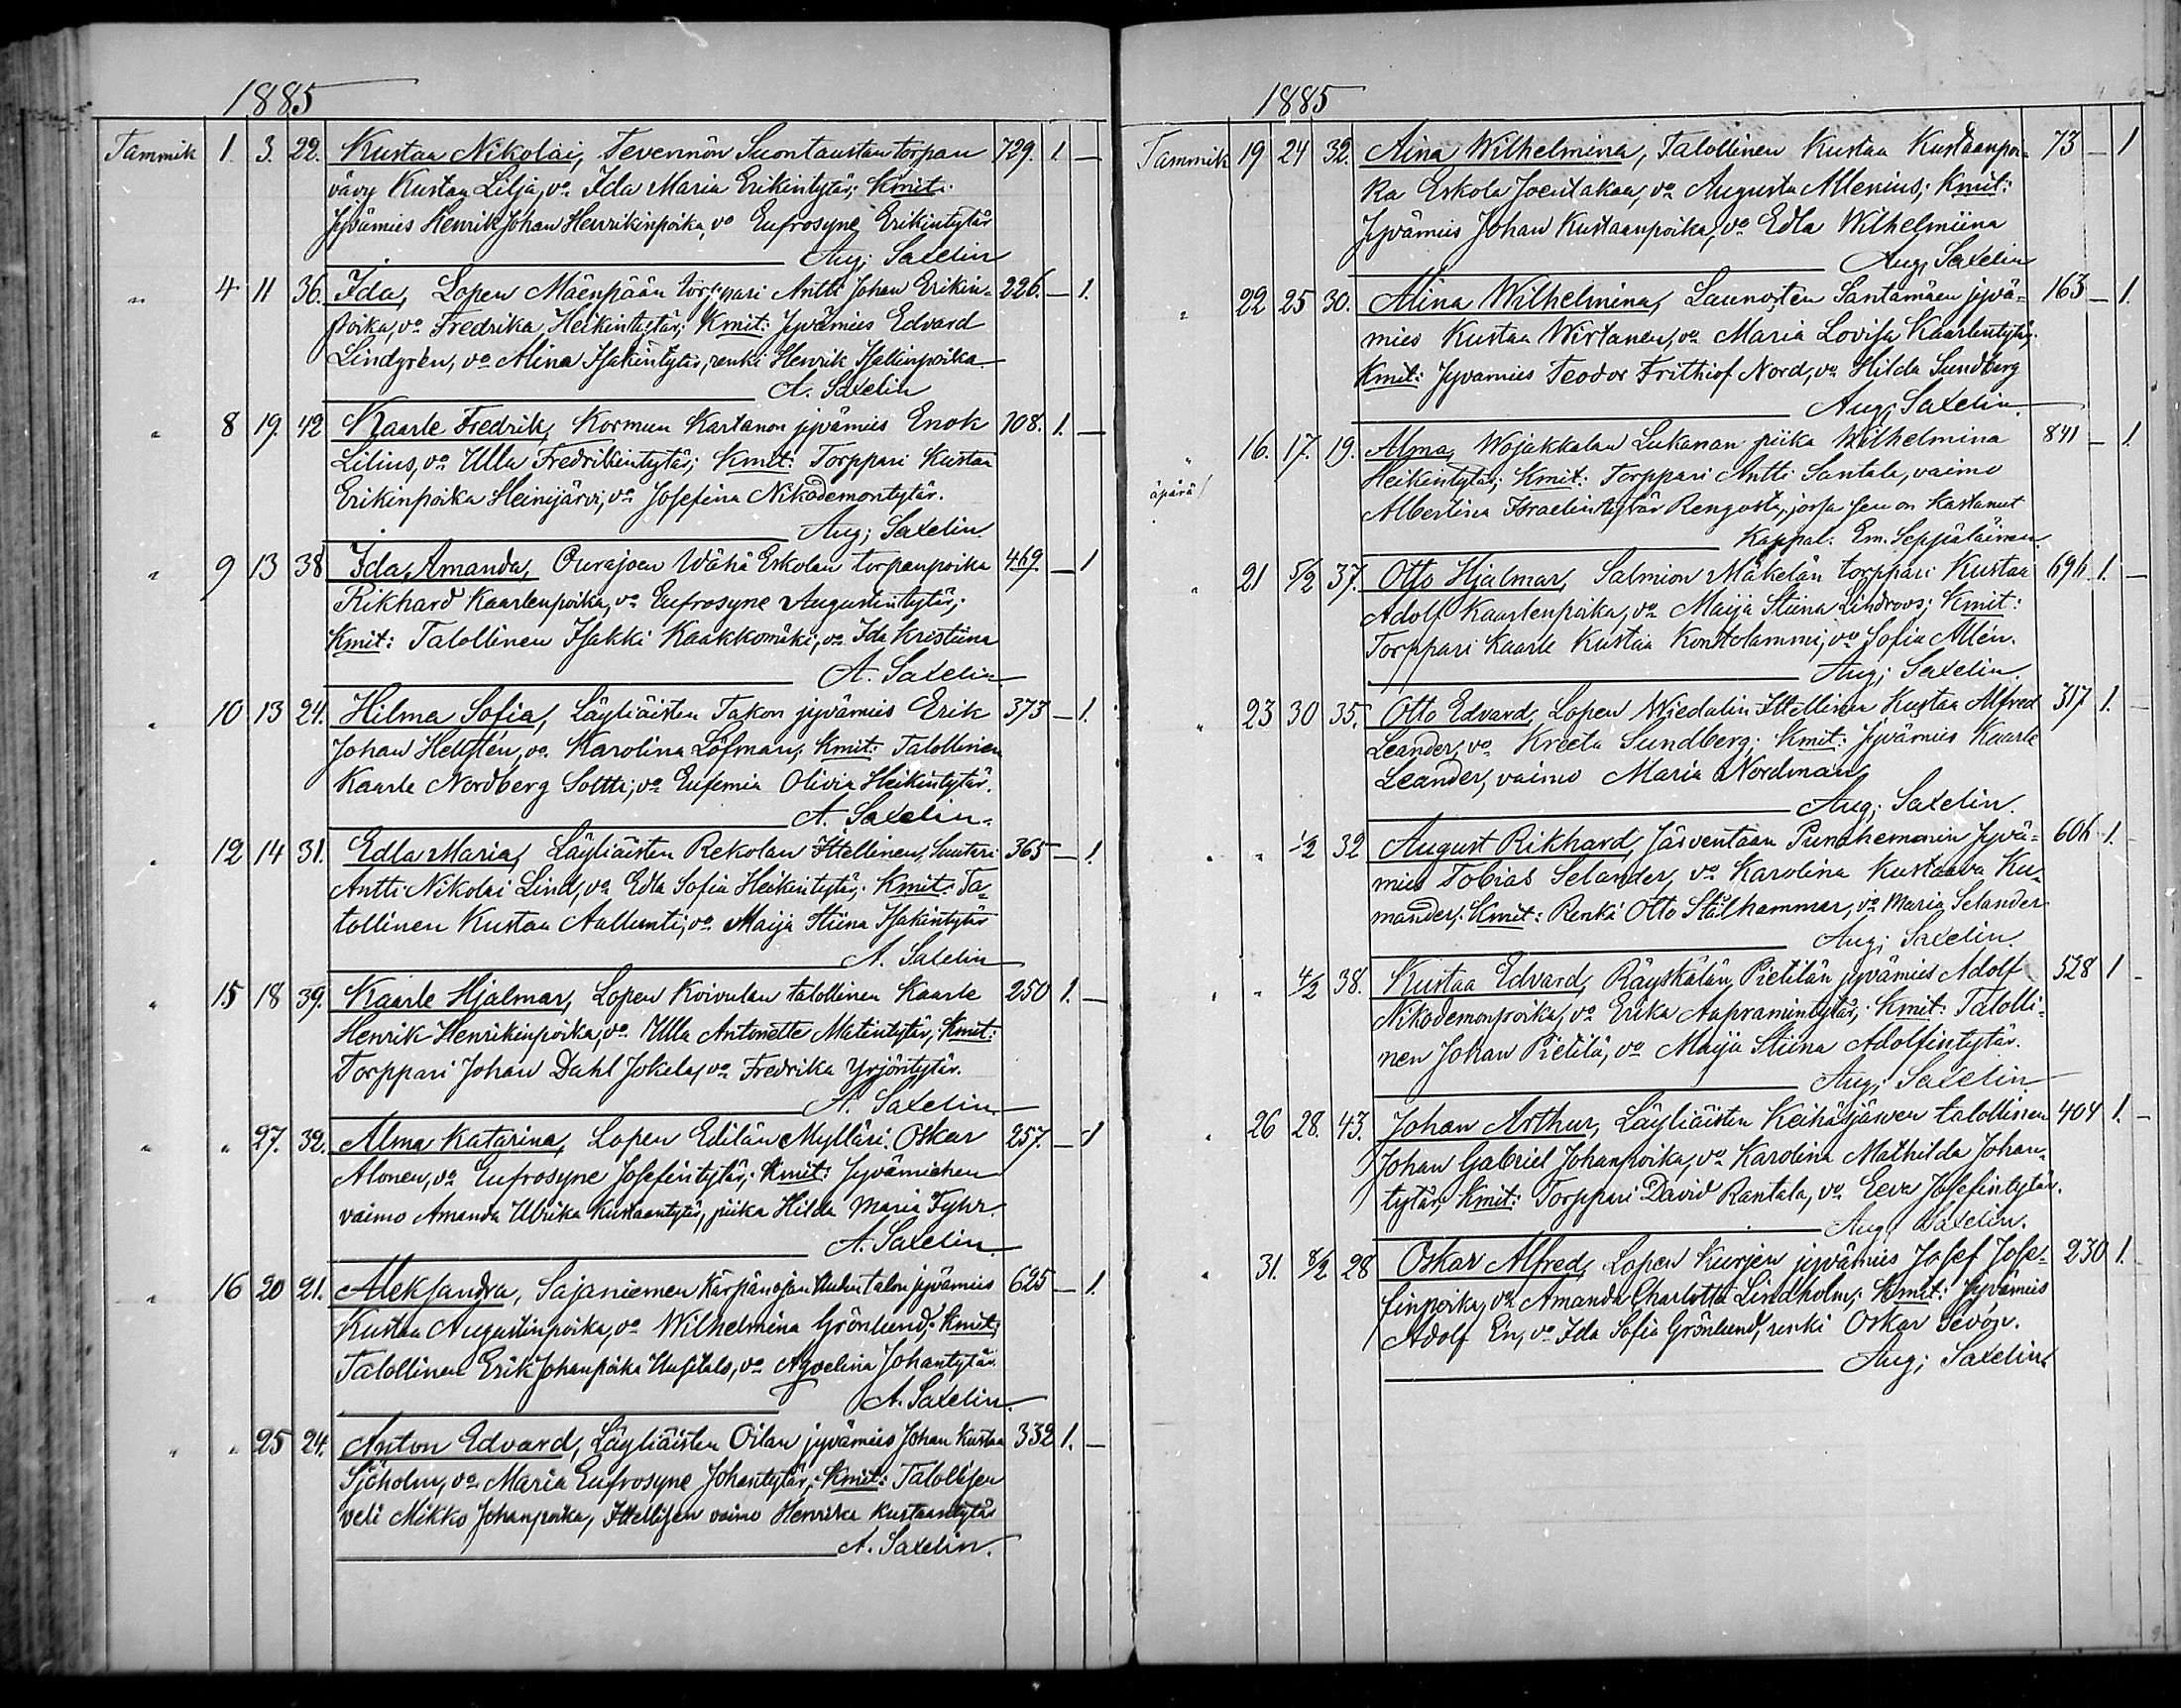 1885
Tammik 1. 3. 22. Kustaa Nikolai, Tevennön Suontaustan torpan 729. 1. —
vävy Kustaa Lilja, vo Ida Maria Erikintytär; Kmit:
Jyvämies Henrik Johan Henrikinpoika, vo Eufrosyne Erikintytär
Aug; Saxelin
" 4 11 36. Ida, Lopen Mäenpään torppari Antti Johan Erikin- 226. — 1.
poika, vo Fredrika Heikintytär; Kmit: Jyvämies Edvard
Lindgrén, vo Mina Isakintytär, renki Henrik
A. Saxelin
" 8 19. 42 Kaarle Fredrik, Kormun Kartanon jyvämies Enok 108. 1. —
Lilius, vo Ulla Fredrikintytär; Kmit: Torppari Kustaa
Erikinpoika Heinijärvi, vo Josefina Nikodemontytär.
Aug; Saxelin.
" 9 13 38 Ida Amanda, Ourajoen Wähä Eskolan torpanpoika 469 — 1
Rikhard Kaarlenpoika, vo Eufrosyne Augustintytär;
Kmit: Talollinen Isakki Kaakkomäki, vo Ida Kristiina
A. Saxelin
" 10 13 24. Hilma Sofia, Läyliäisten Takon jyvämies Erik 373 — 1.
Johan Hellstén, vo Karolina Löfman; Kmit: Talollinen
Kaarle Nordberg Soltti, vo Eufemia Olivia Heikintytär.
A. Saxelin.
" 12 14 31. Edla Maria, Läyliäisten Rekolan Ittellinen, Suutari 365 — 1.
Antti Nikolai Lind, vo Edla Sofia Heikintytär; Kmit: Ta-
lollinen Kustaa Aallunti, vo Maija Stiina Isakintytär
A. Saxelin
" 15 18 39. Kaarle Hjalmar, Lopen Koivulan talollinen Kaarle 250 1. —
Henrik Henrikinpoika, vo Ulla Antonette Matintytär; Kmit:
Torppari Johan Dahl Jokela, vo Fredrika Yrjöntytär.
A. Saxelin.
" " 27. 32. Alma Katarina, Lopen Edilän Mylläri Oskar 257. — 1
Alonen, vo Eufrosyne Josefintytär; Kmit: Jyvämiehen
vaimo Amanda Ulrika Kustaantytär, piika Hilda Maria Fyhr.
A. Saxelin.
" 16 20 21. Aleksandra, Sajaniemen Kärpänojan Uudentalon jyvämies 625 — 1.
Kustaa Augustinpoika, vo Wilhelmina Grönlund; Kmit:
Talollinen Erik Johanpoika Uusitalo, vo Johantytär.
A. Saxelin.
" " 25 24. Anton Edvard, Läyliäisten Oilan jyvämies Johan Kustaa 332 1. —
Sjöholm, vo Maria Eufrosyne Johantytär; Kmit: Talollisen
veli Mikko Johanpoika, Ittellisen vaimo Henrika Kustaantytär
A. Saxelin.
1885
Tammik 19 24 32. Aina Wilhelmina, Talollinen Kustaa Kustaanpoi- 73 — 1
ka Eskola Joentakaa, vo Augusta Allenius; Kmit:
Jyvämies Johan Kustaanpoika, vo Edla Wilhelmiina
Aug; Saxelin
" 22 25 30. Miina Wilhelmina, Launosten Santamäen jyvä- 163 — 1.
mies Kustaa Wirtanen, vo Maria Lovisa Kaarlentytär;
Kmit: Jyvamies Teodor Frithiof Nord, vo Hilda Sundberg
Aug; Saxelin.
" 16. 17. 19. Alma, Wojakkalan Lukanan piika Wilhelmina 841 — 1.
äpärä/ Heikintytär; Kmit: Torppari Antti Santala, vaimo
Albertina Israelintytär Rengosta, jossa sen on kastanut
Kappal. Em. Seppäläinen.
" 21 5/2 37. Otto Hjalmar, Salmion Mäkelän torppari Kustaa 696. 1. —
Adolf Kaarlenpoika, vo Maija Stiina Lindroos; Kmit:
Torppari Kaarle Kustaa Kontolammi, vo Sofia Allén.
Aug; Saxelin.
" 23 30 35. Otto Edvard, Lopen Wiedalin Ittellinen Kustaa Alfred 317 1. —
Leander, vo Kreeta Sundberg; Kmit: Jyvämies Kaarle
Leander, vaimo Maria Nordman
Aug; Saxelin.
" " 1/2 32 August Rikhard, Järventaan Punahemmin Jyvä- 606 1. —
mies Tobias Selander, vo Karolina Kustaava Ku-
mander; Kmit: Renki Otto Stålhammar, vo Maria Selander
Aug; Saxelin.
" " 4/2 38. Kustaa Edvard, Räyskälän Pietilän jyvämies Adolf 528 1 —
Nikodemonpoika, vo Erika Aapramintytär; Kmit: Talolli-
nen Johan Pietilä, vo Maija Stiina Adolfintytär.
Aug; Saxelin
" 26 28. 43. Johan Arthur, Läyliäisten Keihäsjärven talollinen 404 1. —
Johan Gabriel Johanpoika, vo Karolina Mathilda Johan-
tytär; Kmit: Torppari David Rantala, vo Eeva Josefintytär.
Aug; Saxelin.
" 31. 8/2 28 Oskar Alfred, Lopen Kurjen jyvämies Josef Jose- 230 1.
finpoika, vo Amanda Charlotta Lindholm; Kmit: Jyvämies
Adolf En, vo Ida Sofia Grönlund, renki Oskar Sevón.
Aug; Saxelin